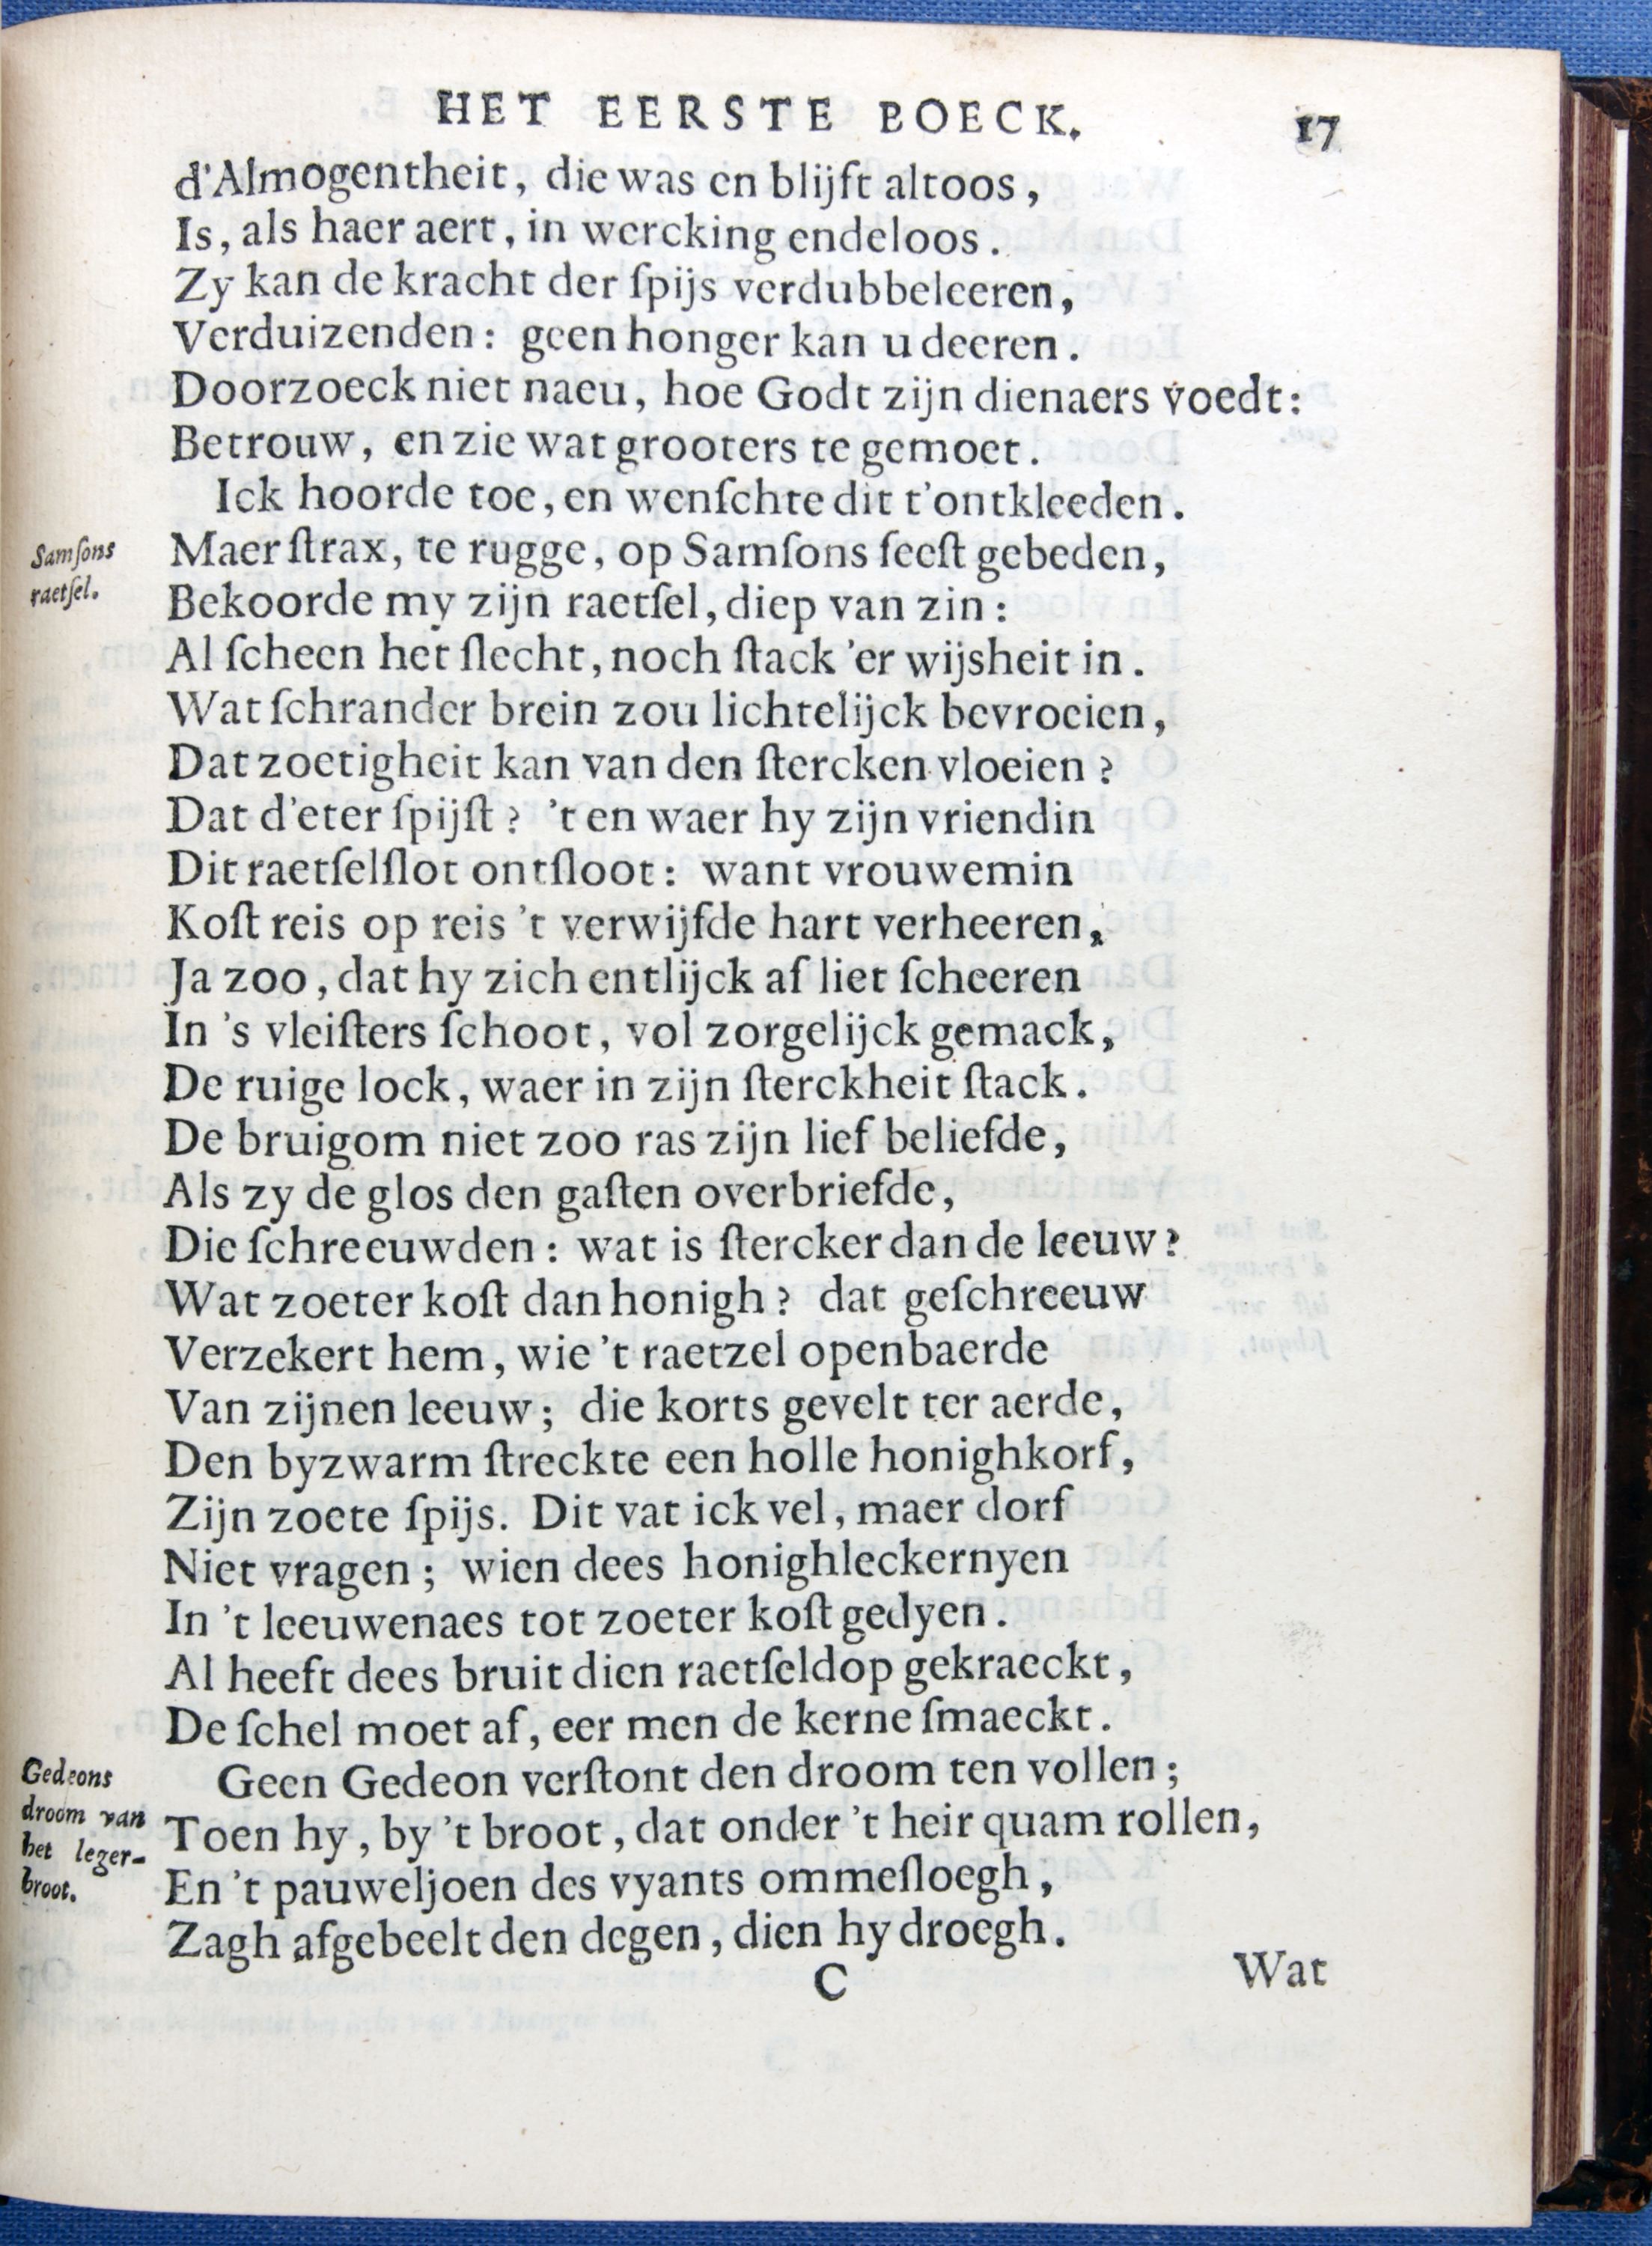 HET EERSTE BOECK. 17
d'Almogentheit, die was en blijft altoos,
Is, als haer aert, in wercking endeloos.
Zy kan de kracht der ſpijs verdubbeleeren,
Verduizenden: geen honger kan u deeren.
Doorzoeck niet naeu, hoe Godt zijn dienaers voedt:
Betrouw, en zie wat grooters te gemoet.
Ick hoorde toe, en wenſchte dit t'ontkleeden.
Samſons
raetſel.
Maer ſtrax, te rugge, op Samſons feeſt gebeden,
Bekoorde my zijn raetſel, diep van zin:
Al ſcheen het ſlecht, noch ſtack 'er wijsheit in.
Wat ſchrander brein zou lichtelijck bevroeien,
Dat zoetigheit kan van den ſtercken vloeien?
Dat d'eter ſpijſt? 't en waer hy zijn vriendin
Dit raetſelſlot ontſloot: want vrouwemin
Koſt reis op reis 't verwijfde hart verheeren,
Ja zoo, dat hy zich entlijck af liet ſcheeren
In 's vleiſters ſchoot, vol zorgelijck gemack,
De ruige lock, waer in zijn ſterckheit ſtack.
De bruigom niet zoo ras zijn lief beliefde,
Als zy de glos den gaſten overbriefde,
Die ſchreeuwden: wat is ſtercker dan de leeuw?
Wat zoeter koſt dan honigh? dat geſchreeuw
Verzekert hem, wie 't raetzel openbaerde
Van zijnen leeuw; die korts gevelt ter aerde,
Den byzwarm ſtreckte een holle honighkorf,
Zijn zoete ſpijs. Dit vat ick vel, maer dorf
Niet vragen; wien dees honighleckernyen
In 't leeuwenaes tot zoeter koſt gedyen.
Al heeft dees bruit dien raetſeldop gekraeckt,
De ſchel moet af, eer men de kerne ſmaeckt.
Gedeons
droom van
het leger-
broot.
Geen Gedeon verſtont den droom ten vollen;
Toen hy, by 't broot, dat onder 't heir quam rollen,
En 't pauweljoen des vyants ommeſloegh,
Zagh afgebeelt den degen, dien hy droegh.
C Wat